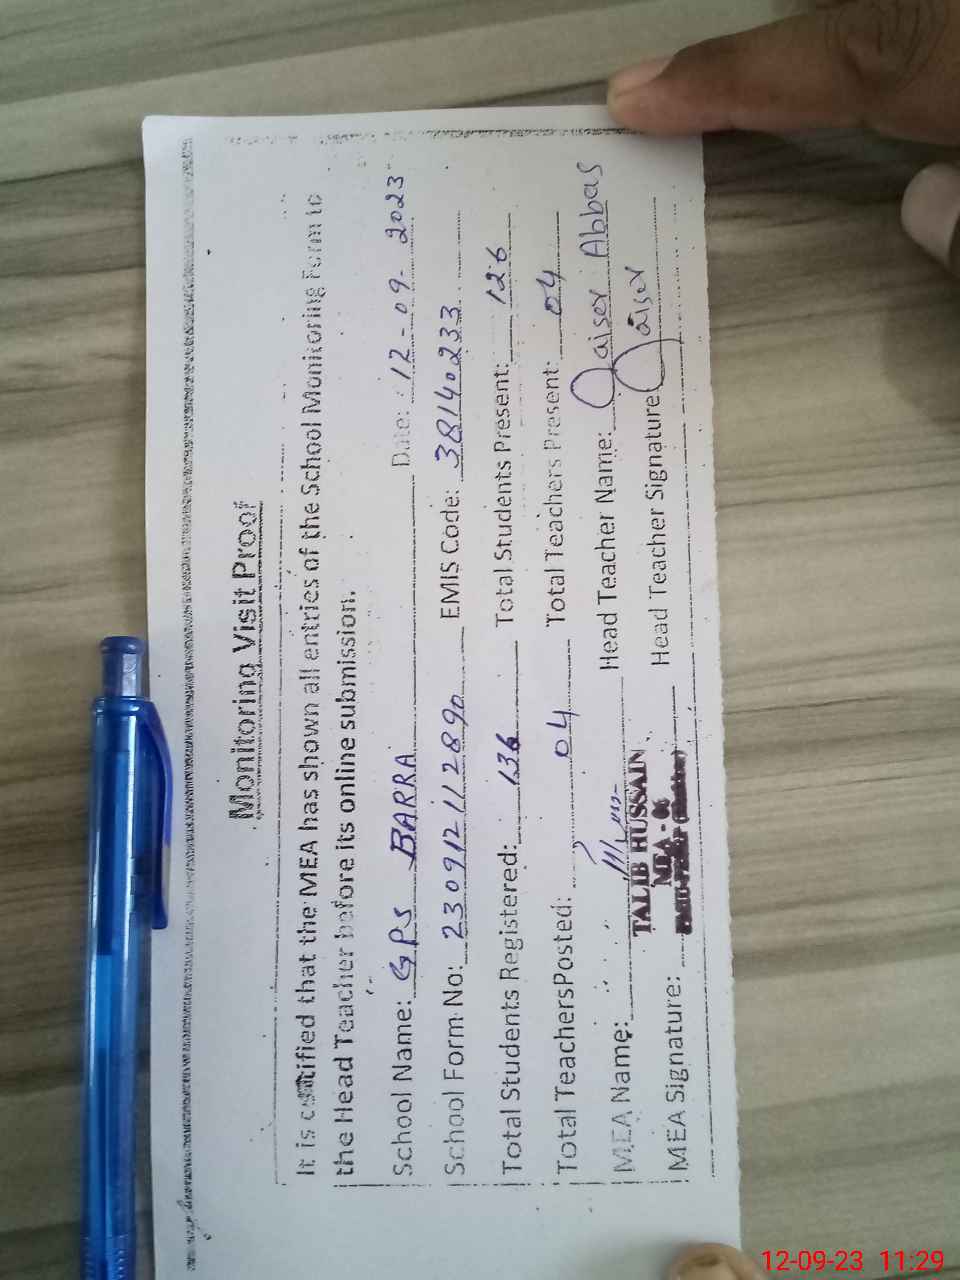 Monitoring Visit Proof
It is certified that the MEA has shown all entries of the School Monitoring Form to
the Head Teacher before its online submission.
School Name: GPS BARRA Date: 12-09-2023
School Form No: 230912112890 EMIS Code: 38140233
Total Students Registered: 136 Total Students Present: 126
Total TeachersPosted: 04 Total Teachers Present: 04
MEA Name: Head Teacher Name: Qaiser Abbas
TALIB HUSSAIN
MEA - 06
MEA Signature: Head Teacher Signature Qaiser
12-09-23 11:29